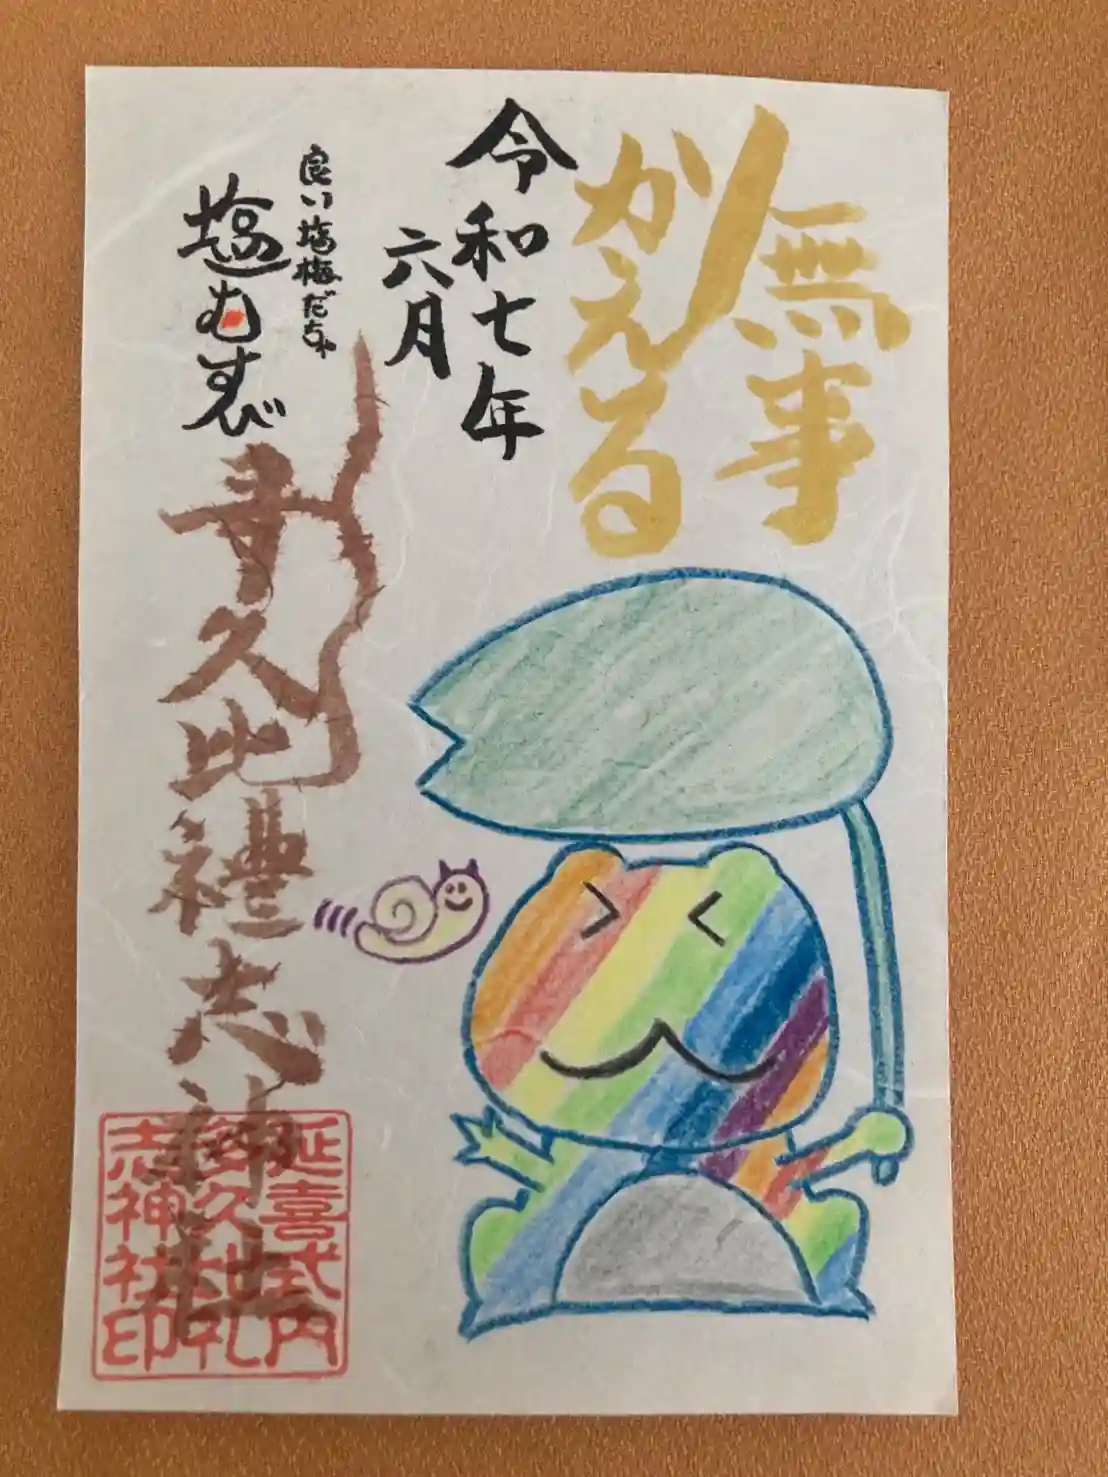 無事
かえる
令和七年
六月
良い塩梅だちゃ
塩むすび
多久比禮志神社
延喜式内
多久比礼
志神社印